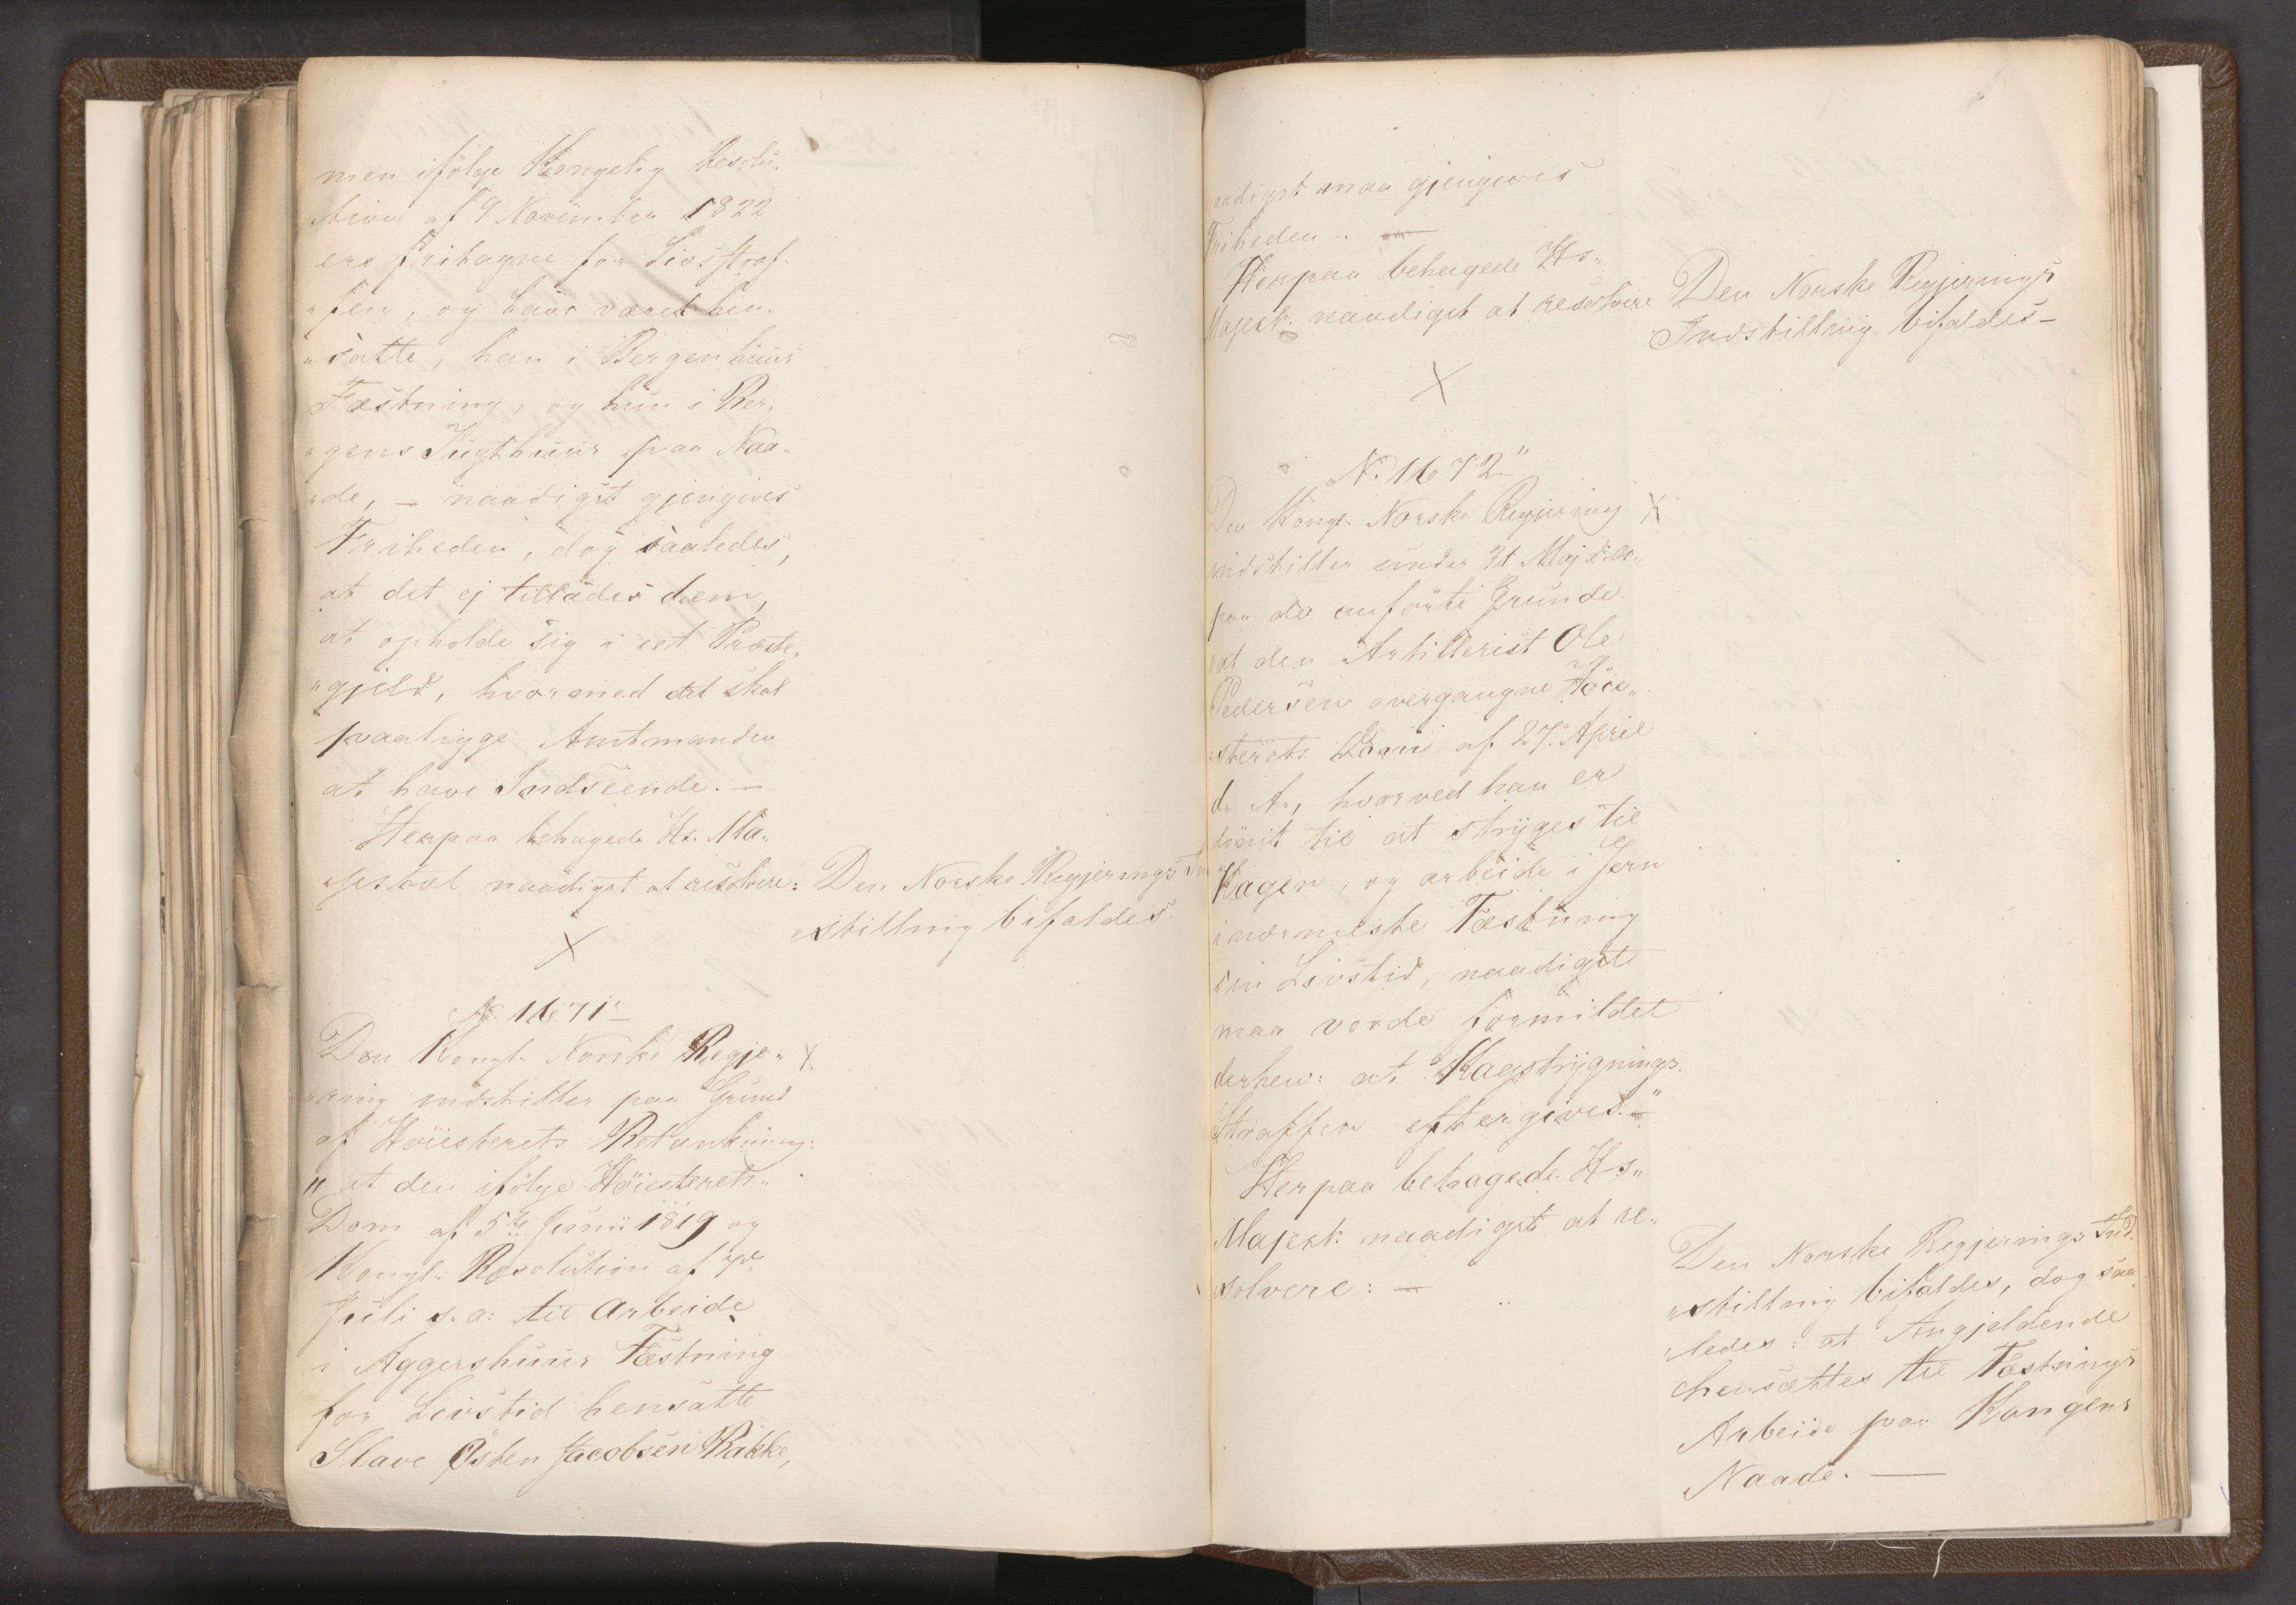 men ifölge Kongelig Resolu-
tion af 9 November 1822
ere fritagne for Livsstraf-
„fen, og have været hen„
„satte, han i Bergenhuus
Fæstning, og hun i Ber„
„gens Tugthuus paa Naa„
„de, — naadigst gjengives
Friheden, dog saaledes,
at det ej tillades dem,
at opholde sig i eet Præste„
„gjeld, hvormed det skal
paaligge Amtmanden
at have Indseende. —
Herpaa behagede Hs. Ma„
„jestæt naadigst at resolvere:
Den Norske Regjerings In
„stilling bifaldes.
X
N. 1671"
Den Kongl. Norske Regje„ X.
„ring indstiller paa Grund
af Höiesterets Betænkning:
„at den ifölge Höiesterets„
Dom af 5te Junii 1819 og
Kongl. Resolution af 7de
Juli s. a: til Arbeide
i Aggershuus Fæstning
for Livstid hensatte
Slave Östen Jacobsen Bakke,
naadigst maa gjengives
Friheden. —
Herpaa behagede Hs„
Majest. naadigst at resolvere
Den Norske Regjerings
Indstilling bifaldes—
X
N. 1672"
Den Kongl. Norske Regjering X
indstiller under 31 Maj d. A.,
paa de anförte Grunde
„at den Artillerist Ole
Pedersen overgangne Höie„
„sterets Dom af 27. April
d. A., hvorved han er
dömt til at stryges til
Kagen, og arbeide i Jern
i nærmeste Fæstning
sin Livstid, naadigst
maa vorde formildet
derhen: at Kagstrygnings-
Straffen eftergives.—"
Herpaa behagede Hs„
Majest. naadigst at re„
solvere: —
Den Norske Regjerings Ind„
„stilling bifaldes, dog saa„
„ledes: at Angjeldende
hensættes til Fæstnings
Arbeide paa Kongens
Naade. —